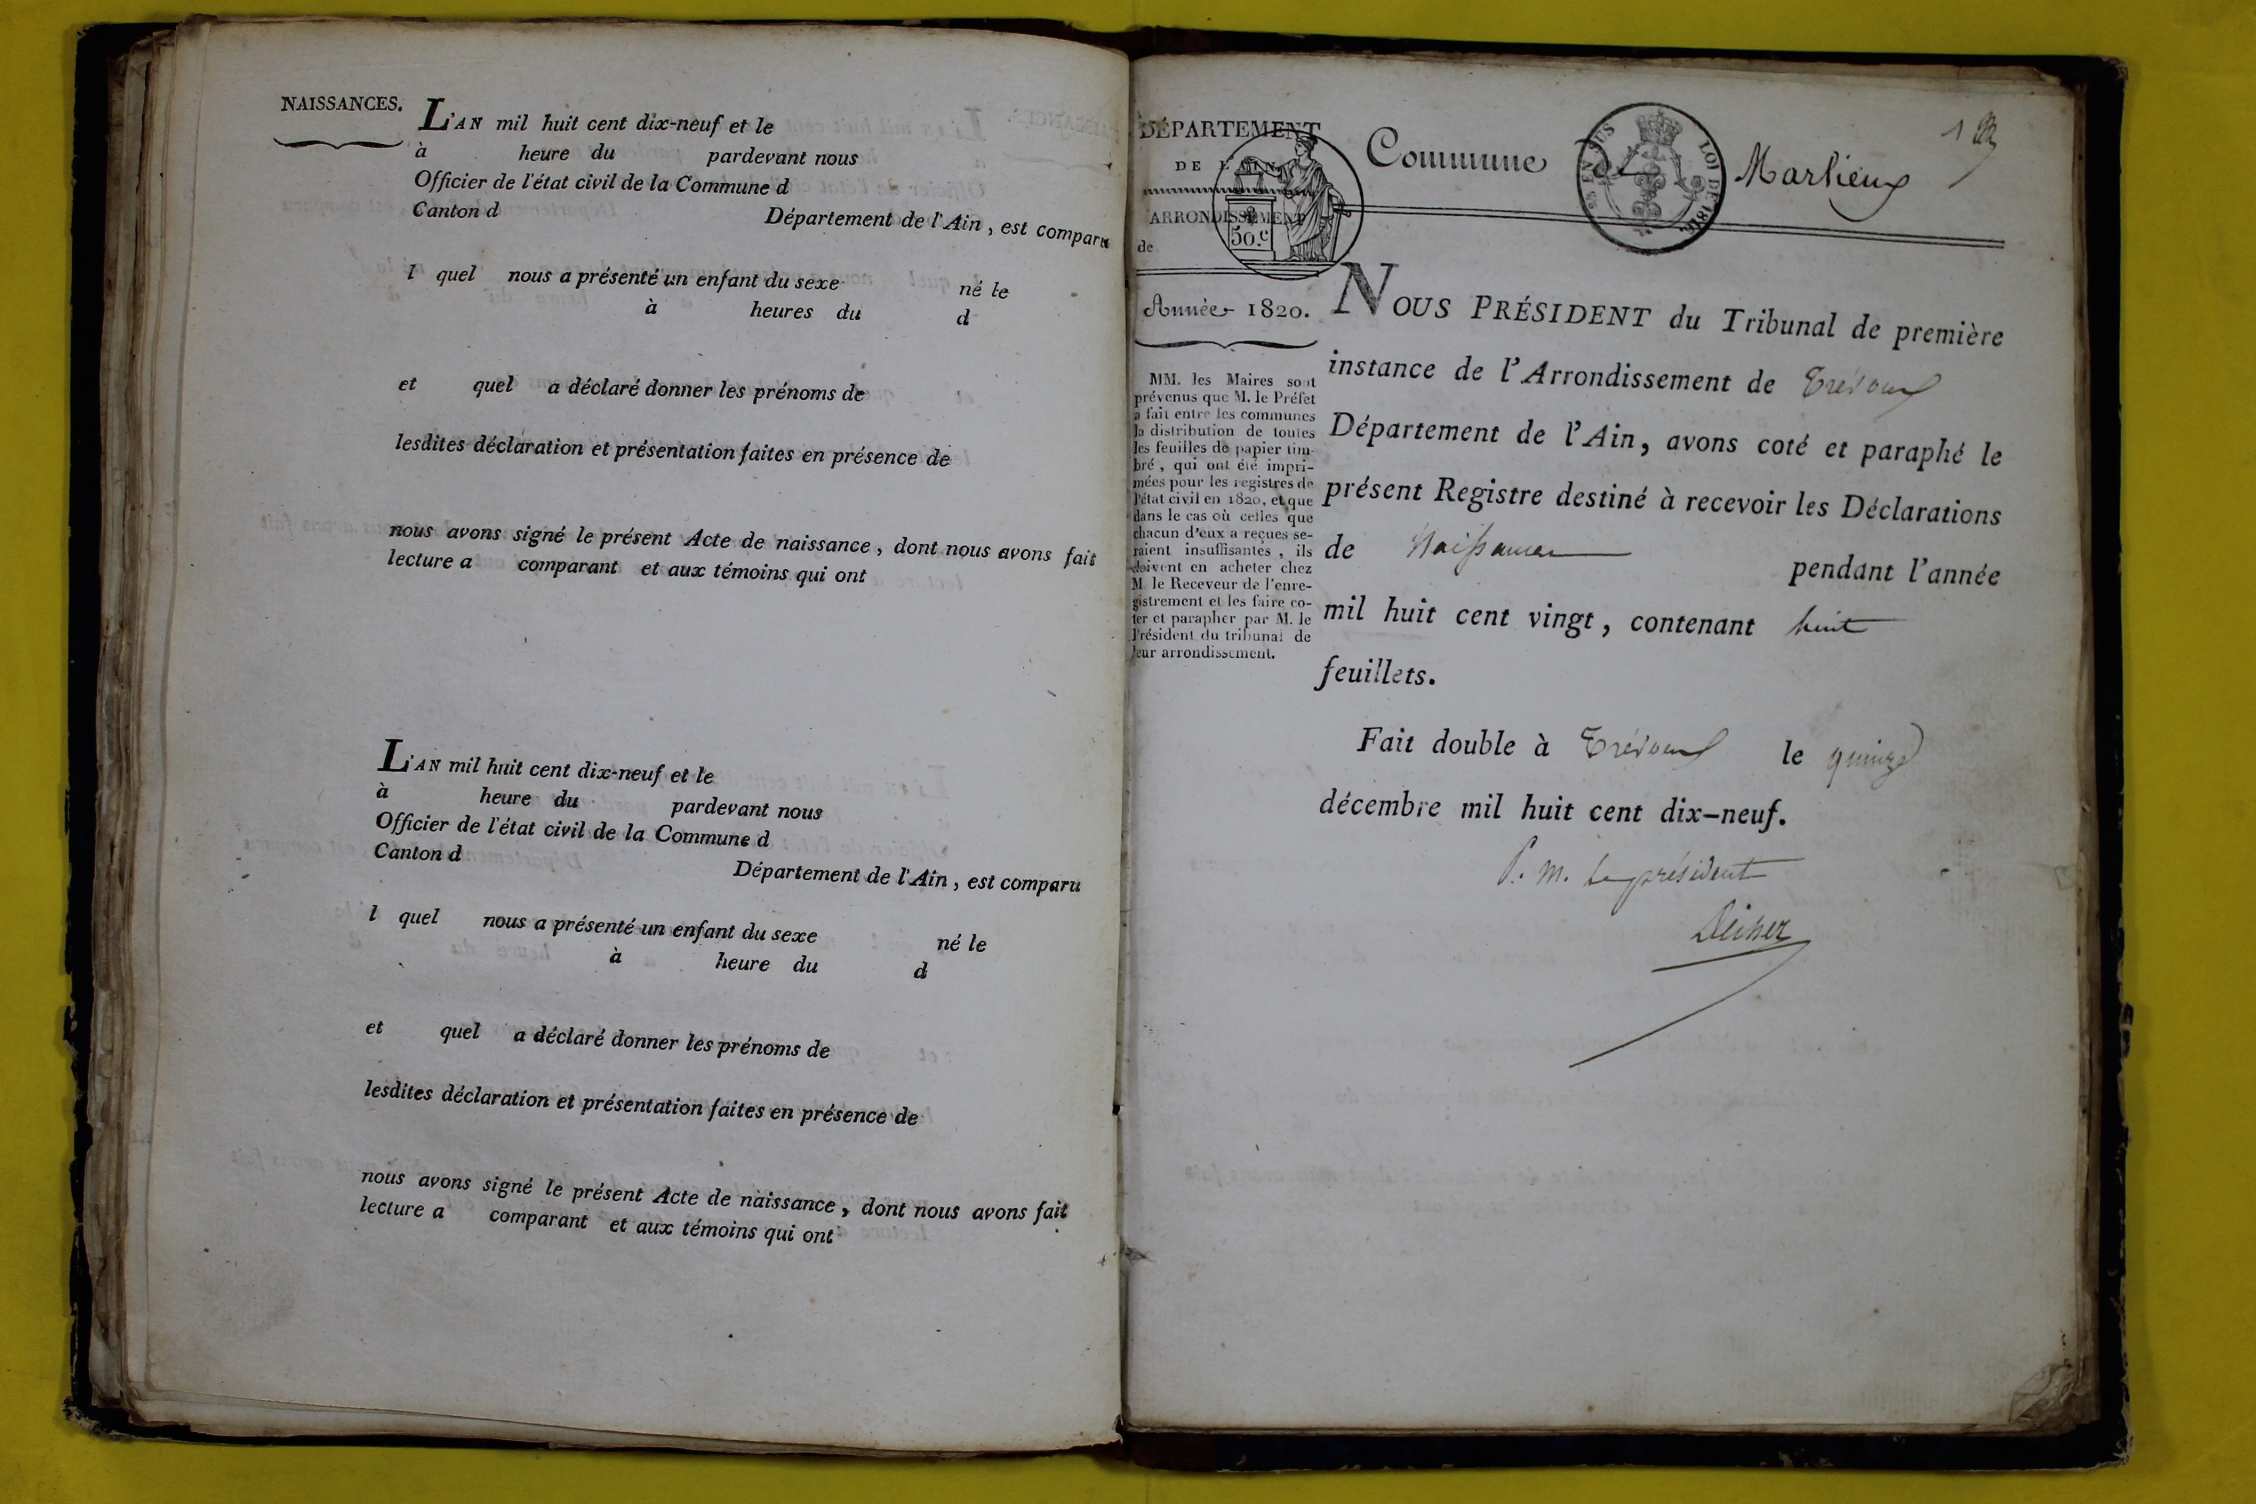 NAISSANCES.
L'AN mil huit cent dix-neuf et le
à heure du pardevant nous
Officier de l'état civil de la Commune d
Canton d Département de l'Ain, est comparu
l quel nous a présenté un enfant du sexe né le
à heures du d
et quel a déclaré donner les prénoms de
lesdites déclaration et présentation faites en présence de
nous avons signé le présent Acte de naissance, dont nous avons fait
lecture a comparant et aux témoins qui ont
L'AN mil huit cent dix-neuf et le
à heure du pardevant nous
Officier de l'état civil de la Commune d
Canton d Département de l'Ain, est comparu
l quel nous a présenté un enfant du sexe né le
à heure du d
et quel a déclaré donner les prénoms de
lesdites déclaration et présentation faites en présence de
nous avons signé le présent Acte de naissance, dont nous avons fait
lecture a comparant et aux témoins qui ont
DÉPARTEMENT
DE L'AIN.
ARRONDISSEMENT
de
50.c
Année 1820.
MM. les Maires sont
prévenus que M. le Préfet
a fait entre les communes
la distribution de toutes
les feuilles de papier tim-
bré, qui ont été impri-
mées pour les registres de
l'état civil en 1820, et que
dans le cas où celles que
chacun d'eux a reçues se-
raient insuffisantes, ils
doivent en acheter chez
M. le Receveur de l'enre-
gistrement et les faire co-
ter et parapher par M. le
Président du tribunal de
leur arrondissement.
1
Commune de Marlieux
EN SUS LOI DE 1816
NOUS PRÉSIDENT du Tribunal de première
instance de l'Arrondissement de Trévoux
Département de l'Ain, avons coté et paraphé le
présent Registre destiné à recevoir les Déclarations
de Naissances pendant l'année
mil huit cent vingt, contenant huit
feuillets.
Fait double à Trévoux le quinze
décembre mil huit cent dix-neuf.
P. M. le président